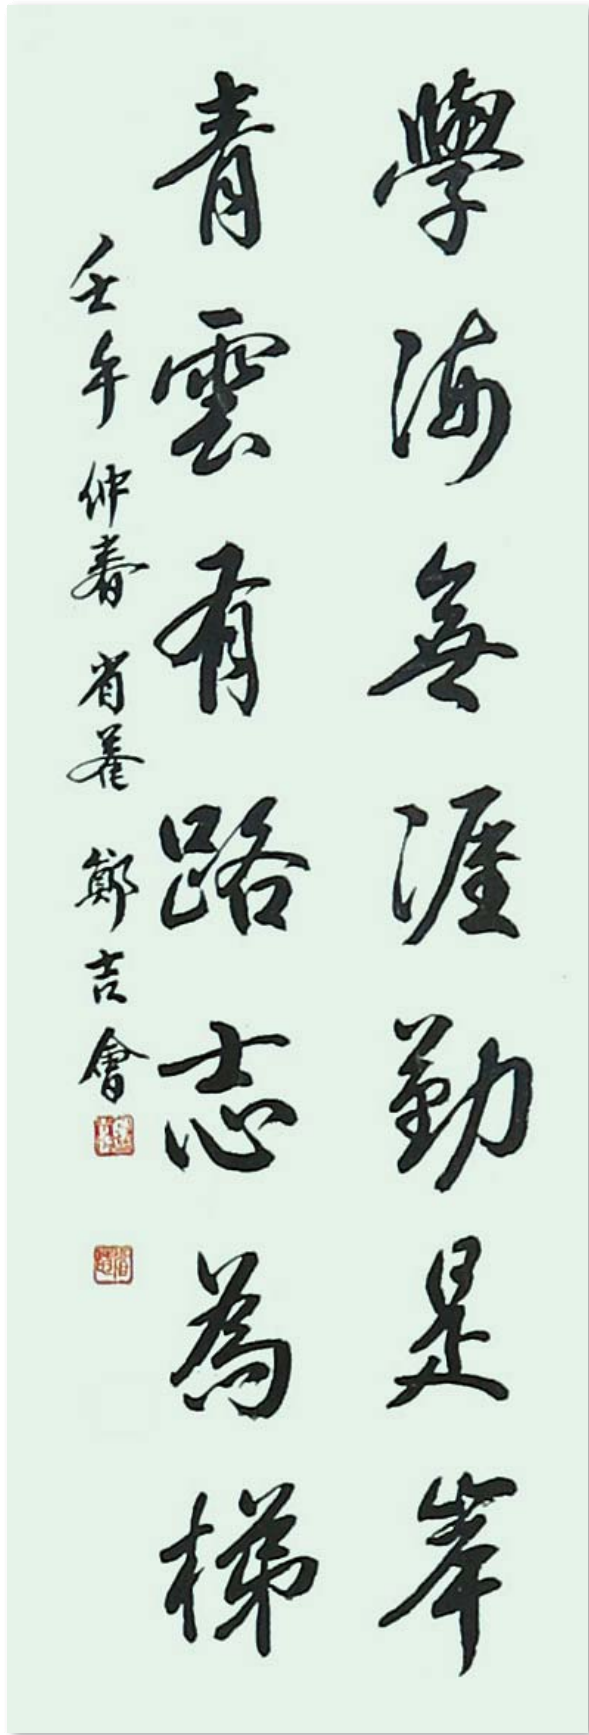 學海無涯勤是岸
青雲有路志為梯
壬午仲春省菴鄭吉會